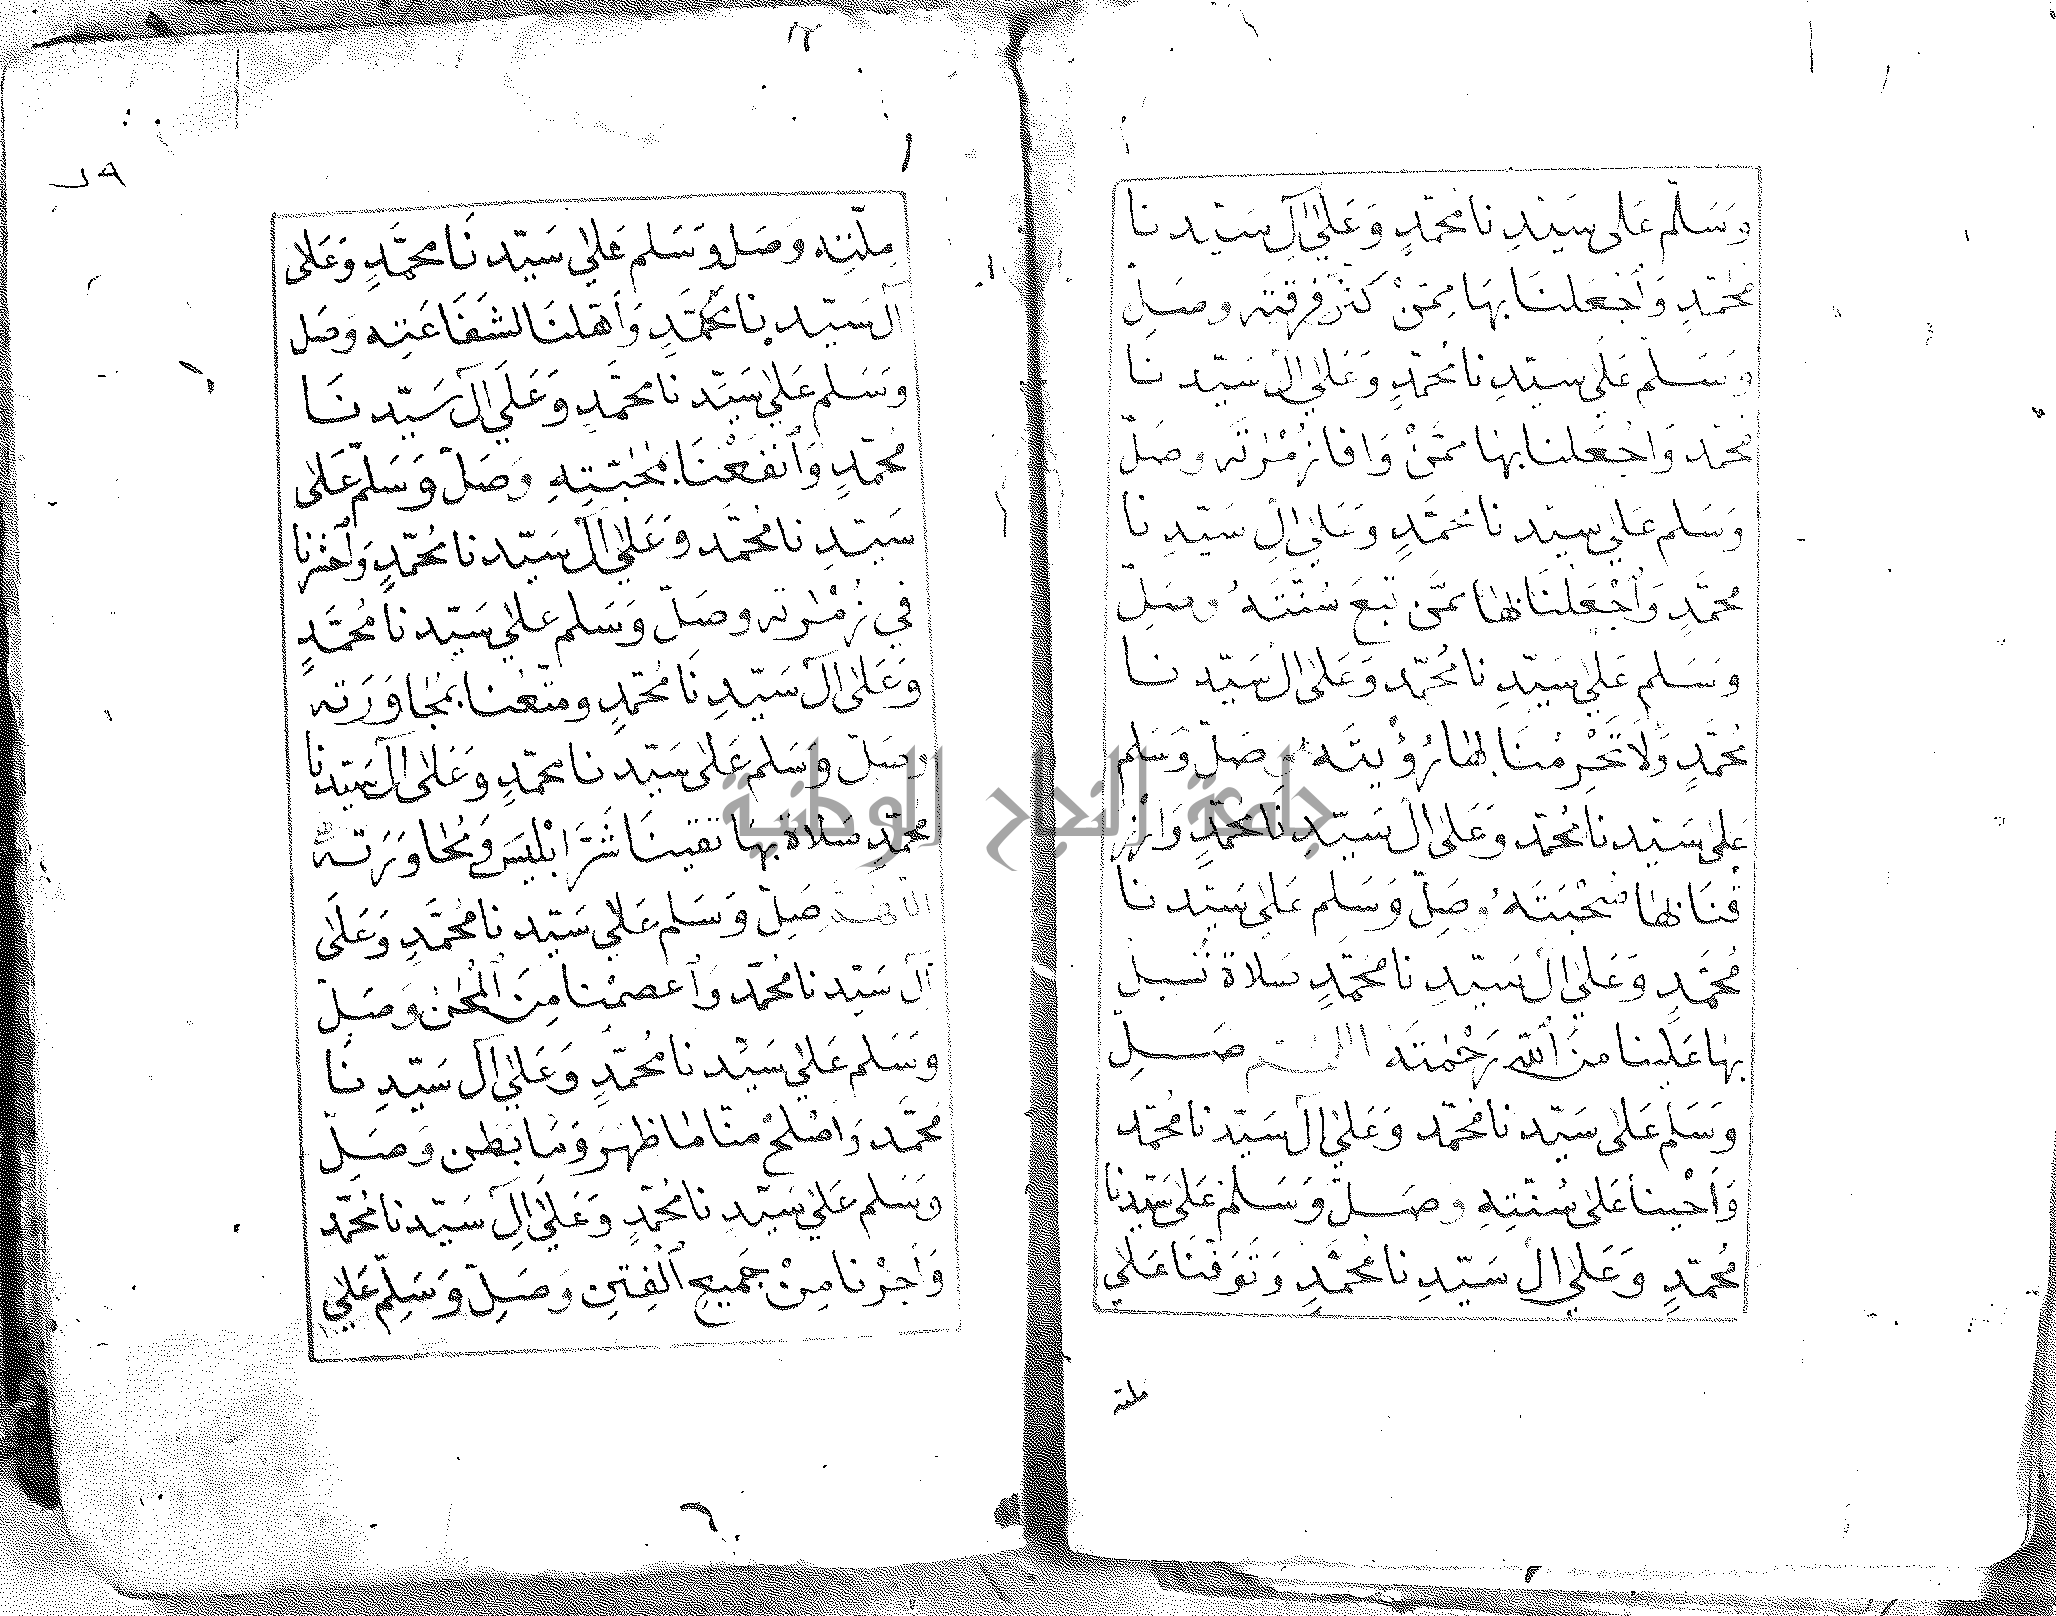 وَسَلّم عَلى سَيّدِ نا محمّدٍ وَعَلىٰ الِ سَيّد نا
محمّدٍ وَاُجعَلنَا بهَا مِمّنْ كَثّرَ فرقته وصَلِّ
وسَلم عَلى سيّدِ نا محمّدٍ وَعَلىٰ الِ سَيّد نا
محمّد وَاجْعَلنا بها ممَّنْ وَافا زُمْرَته وصَلّ
وَسَلم عَلىٰ سيّد نا محمَّدٍ وَعَلىٰ الِ سَيّدِ نا
محمَّدٍ وَاُجْعَلنَا بهَا ممَّن تبعَ سُنّتَهُ وصَلِّ
وسَلم عَلىٰ سَيّدِ نا مُحمّد وَعَلىٰ الِ سَيّد نا
مُحمّدٍ وَلَا تَحْرِمْنَا بهَا رُؤْيتَهُ وصَلّ وَسَلم
عَلىٰ سَيّد نا مُحمّد وعَلىٰ الَ سَيّدِ نَا محمّدٍ وَارْز
قْنَا بهَا صُحْبَتَهُ وصَلّ وَسَلم عَلىٰ سَيّد نا
مُحمَّدٍ وَعَلىٰ الَ سَيّدِ نا مُحَمّدٍ سَلاة تُسبل
بهَا عَلينا منَ اُللّه رَحْمتَه اللهم صَلِّ
وَسَلم عَلىٰ سَيّد نا مُحمّد وَعَلىٰ الَ سَيّد نا مُحمّد
وَاَحْينا عَلىٰ سُنّتِهِ وصَلّ وَسَلم عَلىٰ سَيّدِنا
مُحمّدٍ وَعَلىٰ الَ سَيّدِ نا محمَّدٍ وَتَوَفّنَا عَلىٰ
ملته
١٢
مِلّتِه وصَل وَسَلم عَلىٰ سَيّد نَا محمَّدٍ وَعَلىٰ
الَ سَيّد نا محمَّدٍ وَاَهلنَا لشَفَاعَتِه وَصَل
وَسَلم عَلىٰ سَيّد نا محمَّدٍ وَعَلَى الَ سَيّد نَا
مُحمّدٍ وَاُنفَعْنَا بمحَبّتِهِ وَصَلّ وَسَلّم عَلىٰ
سَيّدِ نا مُحمَّد وَعَلىٰ الَ سَيّد نا مُحمّدٍ وَاُحشُرنا
في زُمْرَته وصَلّ وَسَلم عَلىٰ سَيّد نا مُحمَّدٍ
وعَلىٰ الَ سَيّدِ نَا مُحمّدٍ ومتّعْنا بمُجاوَرَته
وصَلّ وسَلم عَلىٰ سَيّد نا محمّدٍ وعَلىٰ الَ سَيّدنا
محمّدٍ سَلاة بهَا تقينَا شَرّ ابْليسَ وَمُحاوَرَته
اللهمَّ صَلّ وَسَلم عَلىٰ سَيّد نا مُحمَّدٍ وَعَلىٰ
الَ سَيّدِ نا مُحمّد وَاُعصمْنا مِنَ اُلمحَن وَصَلِّ
وَسَلم عَلىٰ سَيّد نا مُحمّدٍ وَعَلىٰ الَ سَيّدِ نَا
مُحمَّد وَاَصْلحْ منّا مَا ظهَرَ وَمَا بَطن وَصَلّ
وَسَلم عَلىٰ سَيّدِ نا مُحمّدٍ وَعَلىٰ الِ سَيّد نا مُحمّد
وَاَجرْنا مِنْ جَميعِ اُلفِتَنِ وَصَلّ وَسَلّم عَلىٰ
جامعة النجاح الوطنية